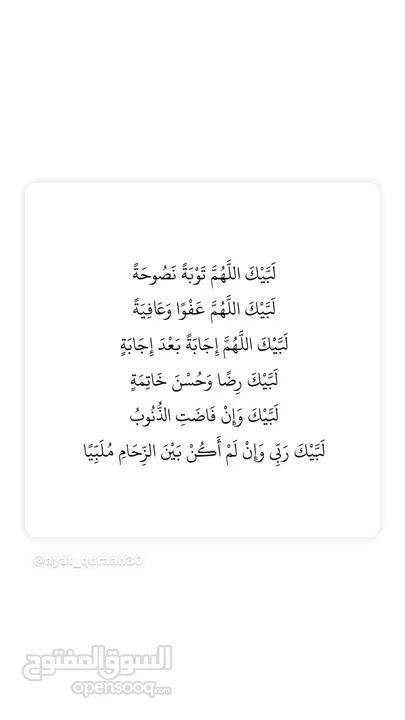 لَبَّيْكَ اللَّهُمَّ تَوْبَةً نَصُوحَةً
لَبَّيْكَ اللَّهُمَّ عَفْوًا وَعَافِيَةً
لَبَّيْكَ اللَّهُمَّ إِجَابَةً بَعْدَ إِجَابَةٍ
لَبَّيْكَ رِضًا وَحُسْنَ خَاتِمَةٍ
لَبَّيْكَ وَإِنْ فَاضَتِ الذُّنُوبُ
لَبَّيْكَ رَبِّى وَإِنْ لَمْ أَكُنْ بَيْنَ الزِّحَامِ مُلَبِّيًا
@ayat_qoraan30
السوق المفتوح
opensooq.com